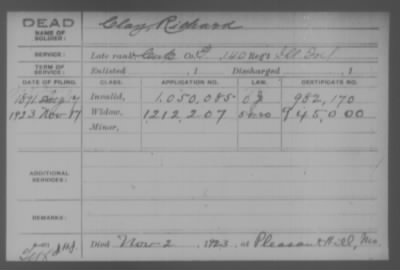 DEAD
NAME OF SOLDIER: Clay, Richard
SERVICE: Late rank, Co. 140 Reg't Ill Inf
TERM OF SERVICE: Enlisted , 1 Discharged , 1
DATE OF FILING. CLASS. APPLICATION NO. LAW. CERTIFICATE NO.
1891 Invalid, 1,050,085 982,170
1923 Nov 17 Widow, 1212207 945,000
Minor,
ADDITIONAL SERVICES:
REMARKS:
Died Nov 2, 1923, at Pleasant Hill, Mo.